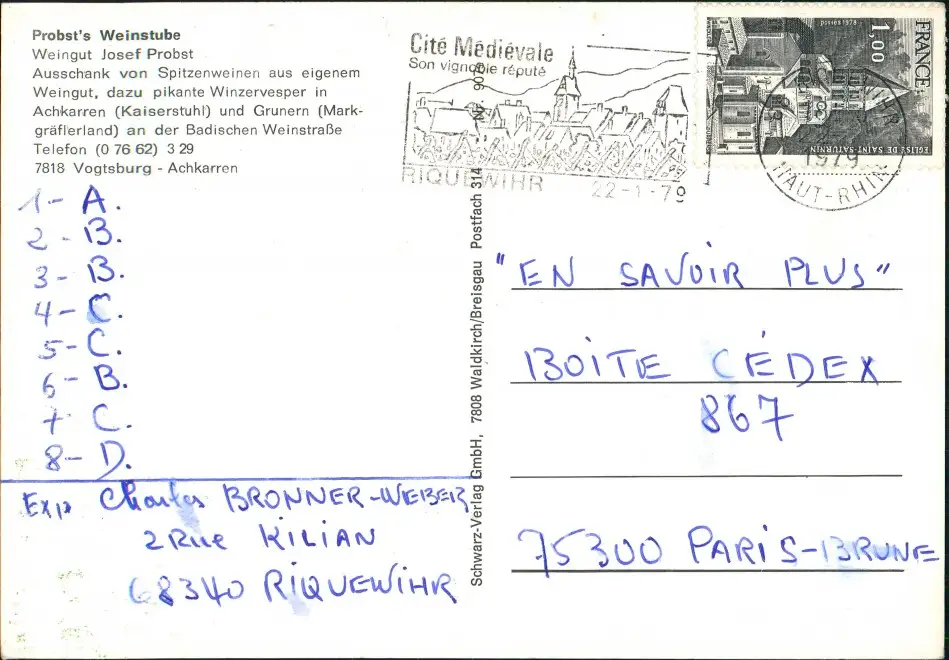 Probst's Weinstube
Weingut Josef Probst
Ausschank von Spitzenweinen aus eigenem
Weingut, dazu pikante Winzervesper in
Achkarren (Kaiserstuhl) und Grunern (Mark-
gräflerland) an der Badischen Weinstraße
Telefon (0 76 62) 3 29
7818 Vogtsburg - Achkarren
1- A.
2- B.
3- B.
4- C.
5- C.
6- B.
7- C.
8- D.
Exp Charles BRONNER-WEBER
2 Rue KILIAN
68340 RIQUEWIHR
Schwarz-Verlag GmbH, 7808 Waldkirch/Breisgau Postfach 314 Nr.
Cité Médiévale
Son vignoble réputé
RIQUEWIHR 22-1-79
FRANCE
1,00
EGLISE DE SAINT-SATURNIN
1979
HAUT-RHIN
"EN SAVOIR PLUS"
BOITE CÉDEX
867
75300 PARIS-BRUNE